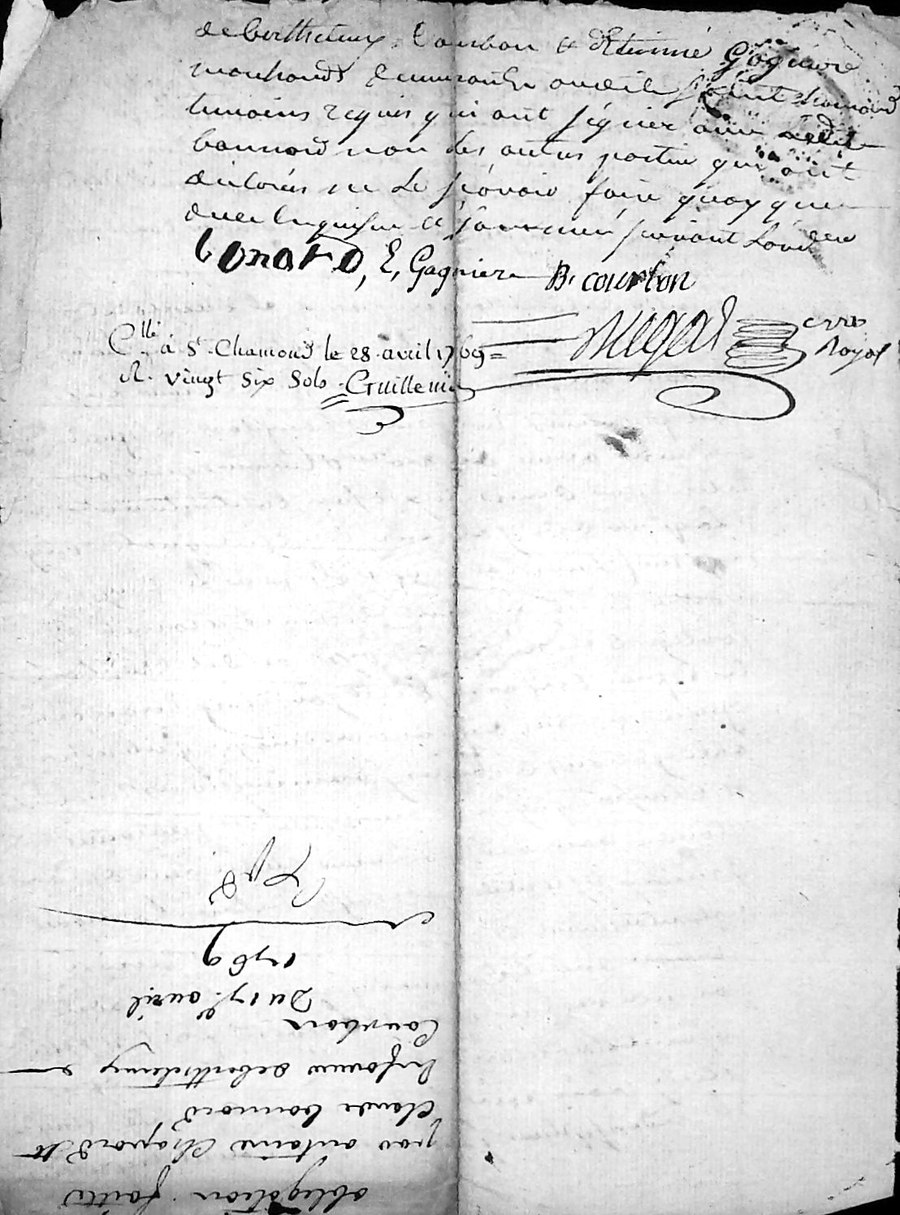 de berthelemy Courbon et Etienne Gagniere
marchands demeurants audit saint chamond
temoins requis qui ont signer avec ledit
bonnard non les autres parties qui ont
declarés ne le scavoir faire quoy que
de ce enquises et sommés suivant l'ord
bonard, E, Gagniere B. courbon
Royal
Cllé à St. Chamond le 28 avril 1769
R. vingt six sols Guillemin
obligation faitte
par antoine Chapard et
Claude bonnard
en faveur de berthelemy
Courbon
Du 17e. avril
1769